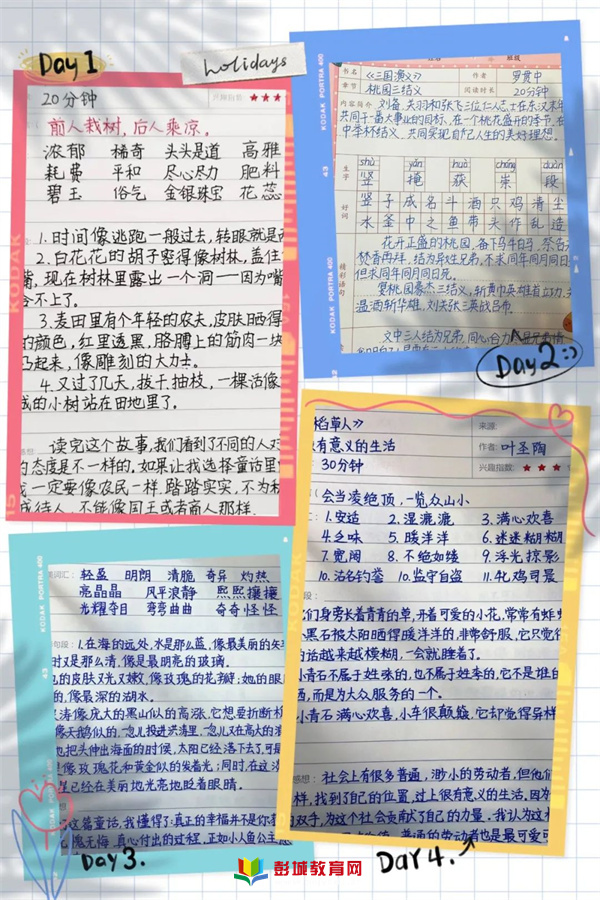 Day 1
holidays
20分钟
兴趣指数 ★★★
前人栽树,后人乘凉。
浓郁 稀奇 头头是道 高雅
耗费 平和 尽心尽力 肥料
碧玉 俗气 金银珠宝 花蕊
1.时间像逃跑一般过去,转眼就是
2.白花花的胡子密得像树林,盖住
嘴,现在树林里露出一个洞——因为嘴
合不上了。
3.麦田里有个年轻的农夫,皮肤晒得
的颜色,红里透黑,胳膊上的筋肉一块
起来,像雕刻的大力士。
4.又过了几天,拔干抽枝,一棵活像
的小树站在田地里了。
读完这个故事,我们看到了不同的人对
的态度是不一样的。如果让我选择童话里
一定要像农民一样踏踏实实,不为
待人,不能像国王或者前人那样。
KODAK PORTRA 400
书名 《三国演义》 作者 罗贯中
章节 桃园三结义 阅读时长 20分钟
内容简介 刘备、关羽和张飞三位仁人志士,在东汉末年
共同干一番大事业的目标,在一个桃花盛开的季节,在
中举杯结义,共同实现自己人生的美好理想。
生字
shù yǎn huò chóng duàn
竖 掩 获 崇 段
好词
竖子成名 斗酒只鸡 清尘
水釜中之鱼 带头作乱 造
精彩语句
花开正盛的桃园,备下乌牛白马,祭告
焚香再拜,结为异姓兄弟,不求同年同月同日
但求同年同月同日死。
宴桃园豪杰三结义,斩黄巾英雄首立功。
温酒斩华雄,刘关张三英战吕布。
文中三人结为兄弟,同心合力
Day2:)
《稻草人》
来源:
有意义的生活
作者: 叶圣陶
30分钟
兴趣指数: ★★★
会当凌绝顶,一览众山小
1.安适 2.湿漉漉 3.满心欢喜
4.乏味 5.暖洋洋 6.迷迷糊糊
7.宽阔 8.不绝如缕 9.浮光掠影
10.沽名钓誉 10.监守自盗 11.牝鸡司晨
们身旁长着青青的草,开着可爱的小花,常常有蚱蜢
小黑石被太阳晒得暖洋洋的,非常舒服,它只觉得
的话越来越模糊,一会就睡着了。
小青石不属于姓张的,也不属于姓李的,它不是谁的
西,而是为大众服务的一个。
小青石满心欢喜,小车很颠簸,它却觉得异样
感想: 社会上有很多普通,渺小的劳动者,但他们
样,找到了自己的位置,过上很有意义的生活,因为
双手,为这个社会贡献了自己的力量,我认为这
普通的劳动者也是最可爱
Day 4.
词汇: 轻盈 明朗 清脆 奇异 灼热
亮晶晶 风平浪静 熙熙攘攘
光耀夺目 弯弯曲曲 奇奇怪怪
句段: 1.在海的远处,水是那么蓝,像最美丽的矢车
时又是那么清,像是最明亮的玻璃。
的皮肤又光又嫩,像玫瑰的花瓣;她的眼
的,像最深的湖水。
涛像庞大的黑山似的高涨,它想要折断桅
像天鹅似的,一忽儿投进洪涛里,一忽儿又在高大的
把头伸出海面的时候,太阳已经落下去了,可是
像玫瑰花和黄金似的发着光;同时,在这
已经在美丽地光亮地眨着眼睛。
这篇童话,我懂得了:真正的幸福并不是你
无悔、真心付出的过程,正如小鱼公主
Day 3.
彭城教育网